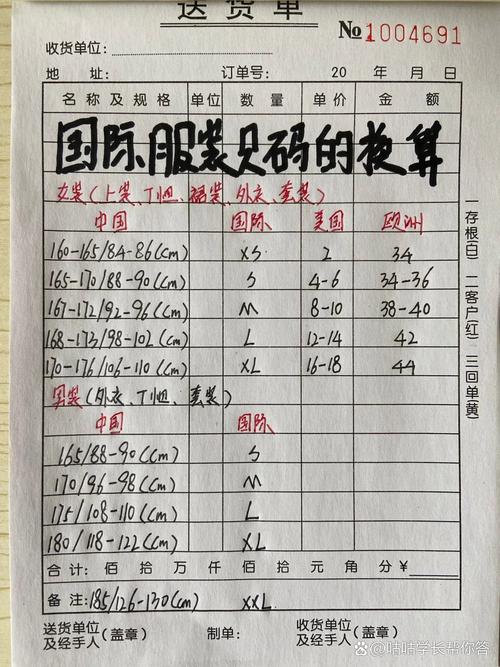 送货单
№1004691
收货单位:
地 址: 订单号: 20 年 月 日
名称及规格 单位 数量 单价 金额
国际服装尺码的换算
女装(上装、T恤、裙装、外衣、套装)
中国 国际 美国 欧洲
160-165/84-86(cm) XS 2 34
165-170/88-90(cm) S 4-6 34-36
167-172/92-96(cm) M 8-10 38-40
168-173/98-102(cm) L 12-14 42
170-176/106-110(cm) XL 16-18 44
男装(外衣、T恤、套装)
中国 国际
165/88-90(cm) S
170/96-98(cm) M
175/108-110(cm) L
180/118-122(cm) XL
合计: 佰 拾 万 仟 佰 拾 元 角 分¥
备注: 185/126-130(cm) XXL
送货单位及经手人(盖章) 制单: 收货单位及经手人(盖章)
一存根(白) 二客户(红) 三回单(黄)
@咕咕学长帮你答